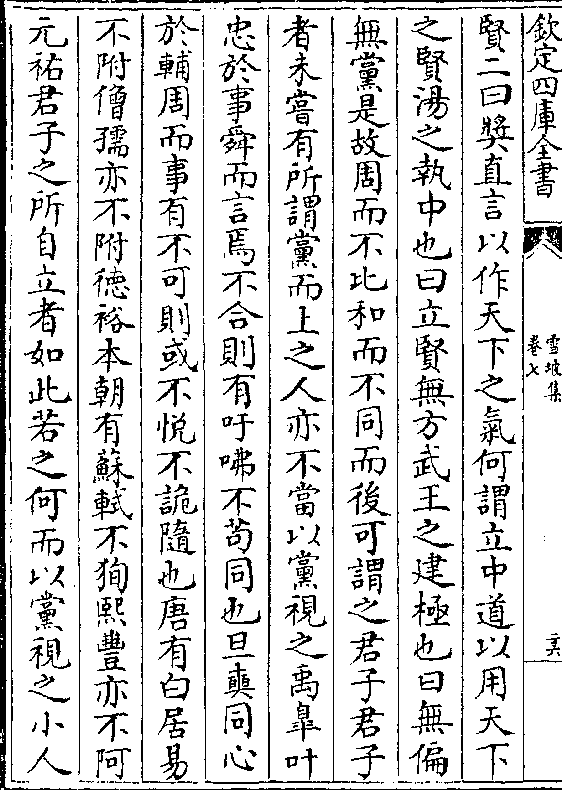 欽定四庫全書
雪坡集
卷七
賢二曰奬直言以作天下之氣何謂立中道以用天下
之賢湯之執中也曰立賢無方武王之建極也曰無偏
無黨是故周而不比和而不同而後可謂之君子君子
者未嘗有所謂黨而上之人亦不當以黨視之禹臯叶
忠於事舜而言焉不合則有吁咈不苟同也旦奭同心
於輔周而事有不可則或不悦不詭隨也唐有白居易
不附僧孺亦不附德裕本朝有蘇軾不狥熙豐亦不阿
元祐君子之所自立者如此若之何而以黨視之小人